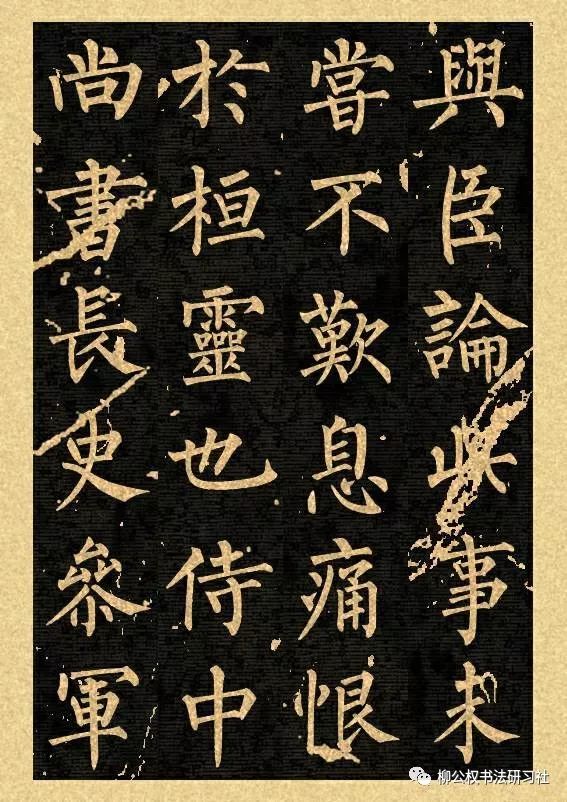 與臣論此事未
甞不歎息痛恨
於桓靈也侍中
尚書長史參軍
柳公权书法研习社